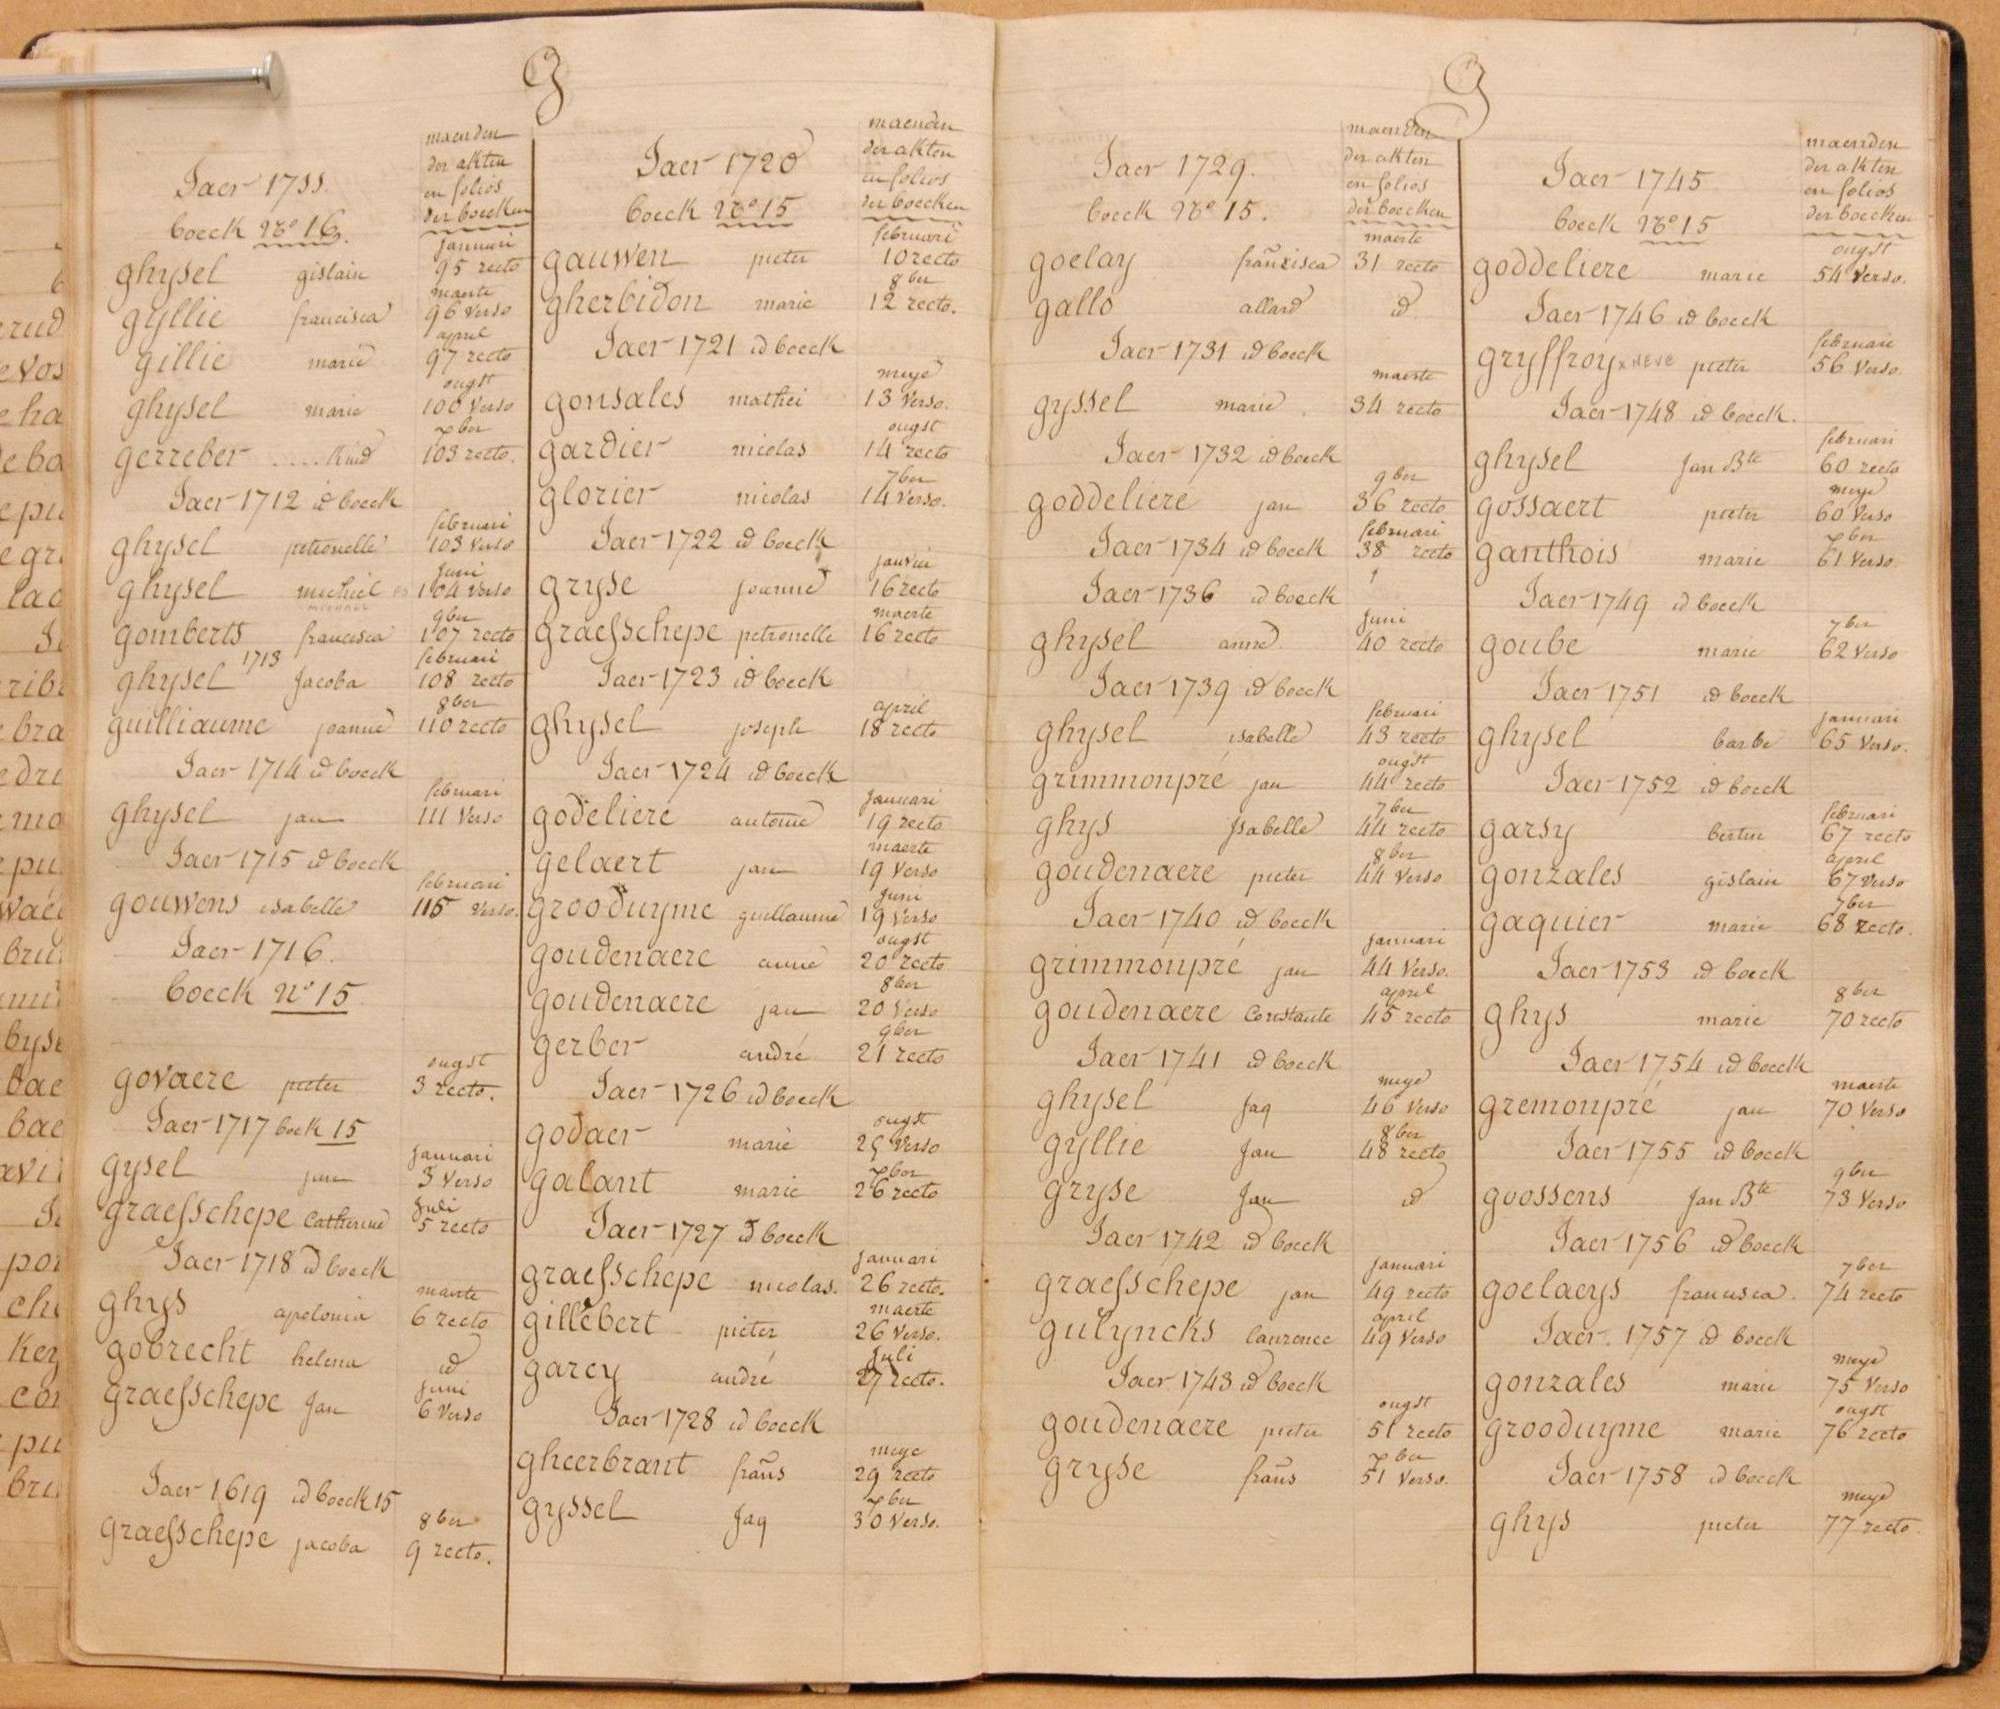 G
Jaer 1711.
boeck Nº 16.
maenden
der akten
en folios
der boecken
januari
ghysel gislain 95 recto
maerte
gyllie francisca 96 verso
april
gillie marie 97 recto
ougst
ghysel marie 100 verso
xber
gerreber .... kind 103 recto.
Jaer 1712 id boeck
februari
ghysel petronelle 103 verso
juni
ghysel michiel 104 verso
9ber
gomberts francisca 107 recto
1713 februari
ghysel Jacoba 108 recto
8ber
guilliaume joanne 110 recto
Jaer 1714 id boeck
februari
ghysel jan 111 verso
Jaer 1715 id boeck
februari
gouwens isabelle 115 verso.
Jaer 1716.
boeck Nº 15
ougst
govaere pieter 3 recto.
Jaer 1717 boek 15
januari
gysel jan 3 verso
Juli
graefschepe Catherine 5 recto
Jaer 1718 id boeck
maerte
ghys apolonia 6 recto
gobrecht helena id
juni
graefschepe Jan 6 verso
Jaer 1619 id boeck 15
8ber
graefschepe jacoba 9 recto.
Jaer 1720
boeck Nº 15
maenden
der akten
en folios
der boecken
februari
gauwen pieter 10 recto
8ber
gherbidon marie 12 recto.
Jaer 1721 id boeck
meye
gonsales mathei 13 verso.
ougst
gardier nicolas 14 recto
7ber
glorier nicolas 14 verso.
Jaer 1722 id boeck
januari
gryse joanne 16 recto
maerte
graefschepe petronelle 16 recto
Jaer 1723 id boeck
april
ghysel joseph 18 recto
Jaer 1724 id boeck
Januari
godeliere antoine 19 recto
maerte
gelaert jan 19 verso
juni
grooduyme guillaume 19 verso
ougst
goudenaere anne 20 recto
8ber
goudenaere jan 20 verso
9ber
gerber andré 21 recto
Jaer 1726 id boeck
ougst
godaer marie 25 verso
xber
galant marie 26 recto
Jaer 1727 id boeck
januari
graefschepe nicolas. 26 recto.
maerte
gillebert pieter 26 verso.
Juli
garcy andré 27 recto.
Jaer 1728 id boeck
meye
gheerbrant frans 29 recto
xber
gyssel Jaq 30 verso.
G
Jaer 1729.
boeck Nº 15.
maenden
der akten
en folios
der boecken
maerte
goelay francisca 31 recto
gallo allard id
Jaer 1731 id boeck
maerte
gyssel marie 34 recto
Jaer 1732 id boeck
9ber
goddeliere jan 36 recto
februari
Jaer 1734 id boeck 38 recto
Jaer 1736 id boeck
Juni
ghysel anne 40 recto
Jaer 1739 id boeck
februari
ghysel isabelle 43 recto
ougst
grimmonpré jan 44 recto
7ber
ghys Jsabelle 44 recto
8ber
goudenaere pieter 44 verso
Jaer 1740 id boeck
januari
grimmonpré jan 44 verso.
april
goudenaere Constante 45 recto
Jaer 1741 id boeck
meye
ghysel Jaq 46 verso
8ber
gyllie Jan 48 recto
gryse Jan id
Jaer 1742 id boeck
januari
graefschepe jan 49 recto
april
gulyncks laurence 49 verso
Jaer 1743 id boeck
ougst
goudenaere pieter 51 recto
xber
gryse frans 51 verso.
Jaer 1745
boeck Nº 15
maenden
der akten
en folios
der boecken
ougst
goddeliere marie 54 verso.
Jaer 1746 id boeck
februari
gryffroy x NEVE pieter 56 verso.
Jaer 1748 id boeck.
februari
ghysel Jan Bte 60 recto
meye
gossaert pieter 60 verso
xber
ganthois marie 61 verso.
Jaer 1749 id boeck
7ber
goube marie 62 verso
Jaer 1751 id boeck
januari
ghysel barbe 65 verso.
Jaer 1752 id boeck
februari
garsy bertin 67 recto
april
gonzales gislain 67 verso
7ber
gaquier marie 68 recto.
Jaer 1753 id boeck
8ber
ghys marie 70 recto
Jaer 1754 id boeck
maerte
gremonpré jan 70 verso
Jaer 1755 id boeck
9ber
goossens Jan Bte 73 verso
Jaer 1756 id boeck
7ber
goelaeys francisca. 74 recto
Jaer. 1757 id boeck
meye
gonzales marie 75 verso
ougst
grooduyme marie 76 recto
Jaer 1758 id boeck
meye
ghys pieter 77 recto.